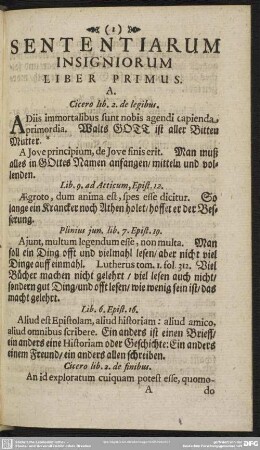 (1)
SENTENTIARUM
INSIGNIORUM
LIBER PRIMUS.
A.
Cicero lib. 2. de legibus.
A Diis immortalibus sunt nobis agendi capienda
primordia. Walts GOTT ist aller Bitten
Mutter.
A Jove principium, de Jove finis erit. Man muß
alles in GOttes Namen anfangen/ mitteln und vol-
lenden.
Lib. 9. ad Atticum, Epist. 12.
Ægroto, dum anima est, spes esse dicitur. So
lange ein Krancker noch Athen holet/ hoffet er der Bes-
serung.
Plinius jun. lib. 7. Epist. 19.
Ajunt, multum legendum esse, non multa. Man
soll ein Ding offt und vielmahl lesen/ aber nicht viel
Dinge auff einmahl. Lutherus tom. 1. fol. 312. Viel
Bücher machen nicht gelehrt / viel lesen auch nicht/
sondern gut Ding/ und offt lesen/ wie wenig sein ist/ das
macht gelehrt.
Lib. 6. Epist. 16.
Aliud est Epistolam, aliud historiam: aliud amico,
aliud omnibus scribere. Ein anders ist einen Brieff/
ein anders eine Historiam oder Geschichte: Ein anders
einem Freund/ ein anders allen schreiben.
Cicero lib. 2. de finibus.
An id exploratum cuiquam potest esse, quomo-
A do
DFG